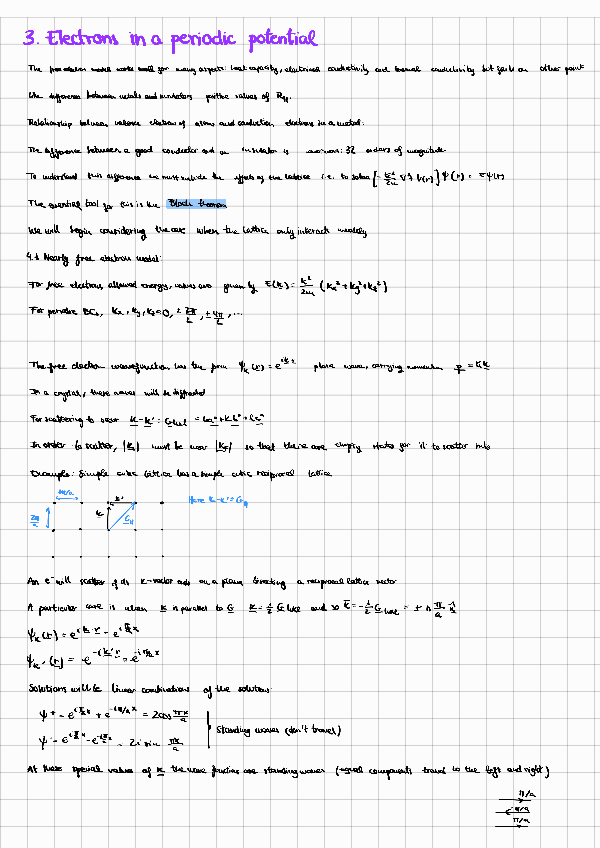 3. Electrons in a periodic potential
The free electron model works well for many aspects: heat capacity, electrical conductivity and thermal conductivity but fails on other point
the difference between metals and insulators, positive values of R_H.
Relationship between valence electrons of atoms and conduction electrons in a metal.
The difference between a good conductor and an insulator is enormous: 32 orders of magnitude.
To understand this difference we must include the effects of the lattice i.e. to solve [-ħ²/2m ∇² + V(r)] ψ(r) = εψ(r)
The essential tool for this is the Bloch theorem
We will begin considering the case when the lattice only interact weakly
4.1 Nearly free electron model:
For free electrons, allowed energy values are given by E(k) = ħ²/2m (kx² + ky² + kz²)
For periodic BCs, kx, ky, kz = 0, ± 2π/L, ± 4π/L, ...
The free electron wavefunction has the form ψ_k(r) = e^{ik·r} plane wave, carrying momentum p = ħk
In a crystal, these waves will be diffracted
For scattering to occur k - k' = G_hkl = ha* + kb* + lc*
In order to scatter, |k| must be near |k_F| so that there are empty states for it to scatter into
Example: Simple cubic lattice has a simple cubic reciprocal lattice
2π/a k'
2π/a k G_H Here k-k' = G_H
An e⁻ will scatter if its k-vector ends on a plane bisecting a reciprocal lattice vector
A particular case is when k is parallel to G k = ½ G_hkl and so k' = -½ G_hkl = ± n π/a x̂
ψ_k(r) = e^{ik·r} = e^{iπ/a x}
ψ_k'(r) = e^{-ik'·r} = e^{-iπ/a x}
Solutions will be linear combinations of the solution:
ψ+ = e^{iπ/a x} + e^{-iπ/a x} = 2cos πx/a
ψ- = e^{iπ/a x} - e^{-iπ/a x} = 2i sin πx/a Standing waves (don't travel)
At these special values of k the wave functions are standing waves (equal components travel to the left and right)
π/a
-π/a
π/a